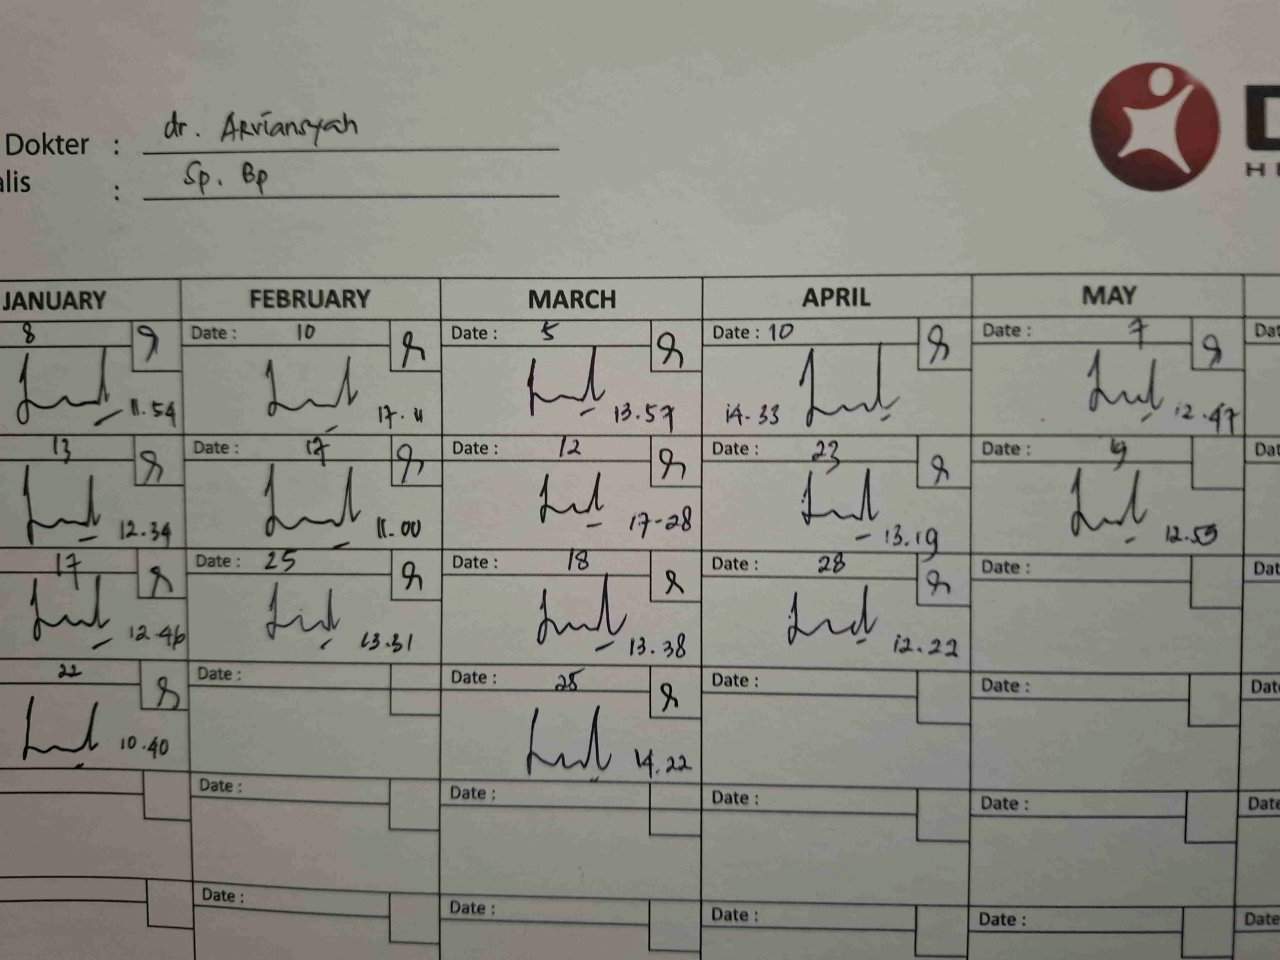 Dokter : dr. Arviansyah
alis : Sp. Bp
D
H
JANUARY FEBRUARY MARCH APRIL MAY
8 Date : 10 Date : 5 Date : 10 Date : 7 Dat
11.54 17.11 13.57 14.33 12.47
13 Date : 17 Date : 12 Date : 23 Date : 19 Dat
12.34 11.00 17-28 13.19 12.53
17 Date : 25 Date : 18 Date : 28 Date : Dat
12.46 13.31 13.38 12.22
22 Date : Date : 25 Date : Date : Dat
10.40 14.22
Date : Date : Date : Date : Date
Date : Date : Date : Date : Date